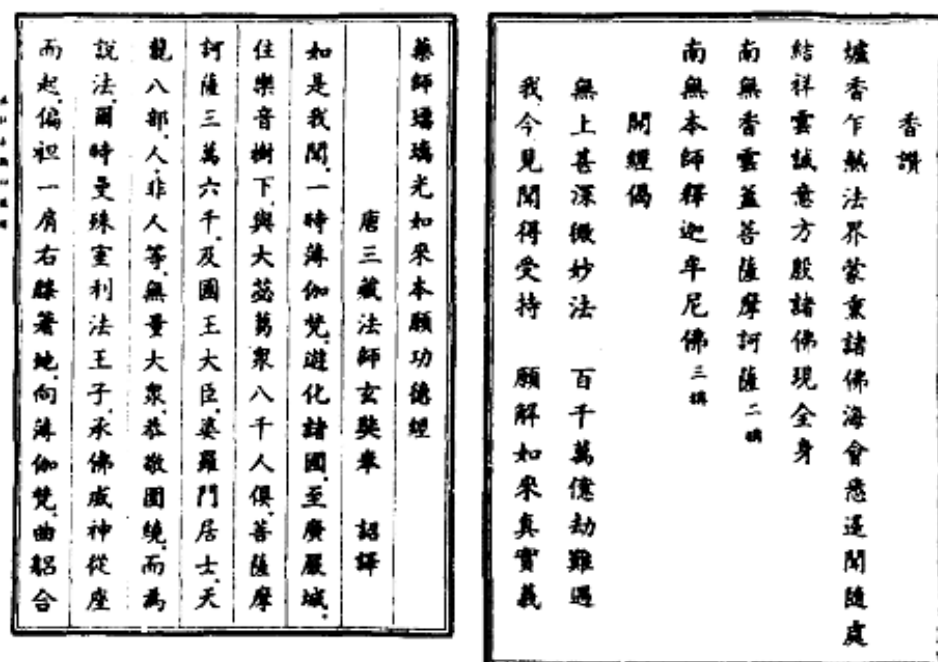 香讚
爐香乍爇法界蒙熏諸佛海會悉遥聞隨處
結祥雲誠意方殷諸佛現全身
南無香雲蓋菩薩摩訶薩 二稱
南無本師釋迦牟尼佛 三稱
開經偈
無上甚深微妙法 百千萬億劫難遇
我今見聞得受持 願解如來真實義
藥師瑠璃光如來本願功德經
唐三藏法師玄奘奉 詔譯
如是我聞一時薄伽梵遊化諸國至廣嚴城
住樂音樹下與大苾芻衆八千人俱菩薩摩
訶薩三萬六千及國王大臣婆羅門居士天
龍八部人非人等無量大衆恭敬圍繞而為
說法爾時曼殊室利法王子承佛威神從座
而起偏袒一肩右膝著地向薄伽梵曲躬合